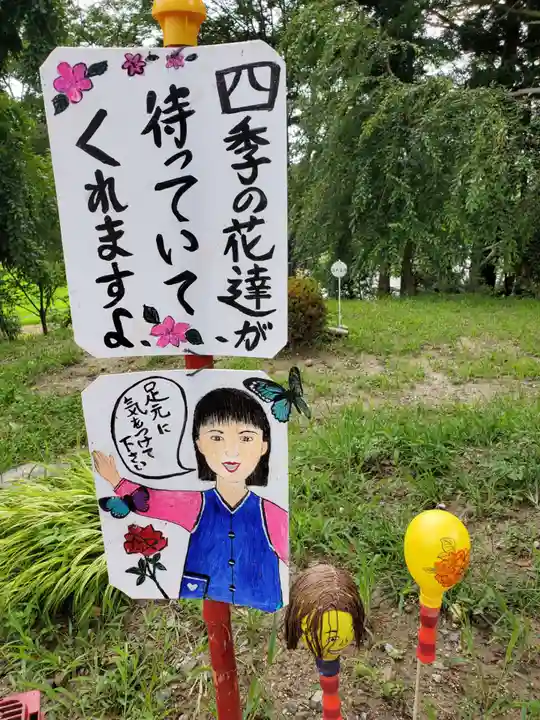 四季の花達が
待っていて
くれますよ、
足元に
気をつけて
下さい